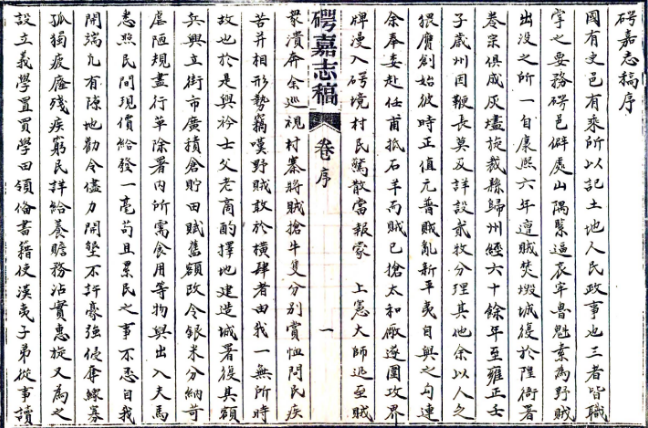 碍嘉志稿序
國有史邑有乘所以記土地人民政事也三者皆職
掌之要務碍邑僻處山隅緊逼哀牢魯魁素為野賊
出没之所一自康熙六年遭賊焚燬城復於陞衙署
卷宗俱成灰燼旋裁縣歸州經六十餘年至雍正壬
子歲州因鞭長莫及詳設貳牧分理其地余以人之
猥膺創始彼時正值元普賊亂新平夷目與之勾連
余奉委赴任甫抵石羊而賊已搶太和廠逐圍攻界
牌漫入碍境村民驚散當報蒙 上憲大師追至賊
碍嘉志稿 卷序 一
衆潰奔余巡視村寨將賊搶牛隻分别賞恤問民疾
苦并相形勢竊嘆野賊敢於橫肆者由我一無所恃
故也於是與衿士父老商酌擇地建造城署復其額
兵興立街市廣積倉貯田賦舊額改令銀米分納苛
虐陋規盡行革除署内所需食用等物與出入夫馬
悉照民間現價給發一毫苟且累民之事不忍自我
開端凡有隙地勸令儘力開墾不許豪強侵奪鰥寡
孤獨疲癃殘疾窮民詳給養贍務沾實惠旋又為之
設立義學置買學田頒俻書籍使漢夷子弟從事讀